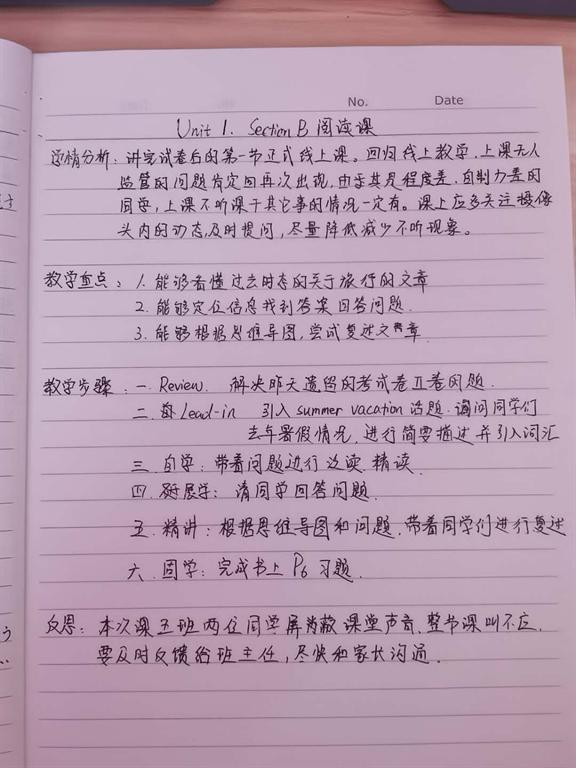 No. Date
Unit 1. Section B 阅读课
学情分析：讲完试卷后的第一节正式线上课。回归线上教学，上课无人
监管的问题肯定回再次出现，由于其是程度差，自制力差的
同学，上课不听课干其它事的情况一定有。课上应多关注摄像
头内的动态及时提问，尽量降低减少不听现象。
教学重点：1. 能够看懂过去时态的关于旅行的文章
2. 能够定位信息找到答案回答问题.
3. 能够根据思维导图，尝试复述文章.
教学步骤：一. Review. 解决昨天遗留的考试卷II卷问题.
二. Lead-in 引入 summer vacation 话题. 询问同学们
去年暑假情况，进行简要描述并引入词汇
三. 自学：带着问题进行泛读. 精读.
四. 展学：请同学回答问题.
五. 精讲：根据思维导图和问题，带着同学们进行复述
六. 固学：完成书上 P6 习题.
反思：本次课五班两位同学屏蔽课堂声音，整节课叫不应.
要及时反馈给班主任，尽快和家长沟通.